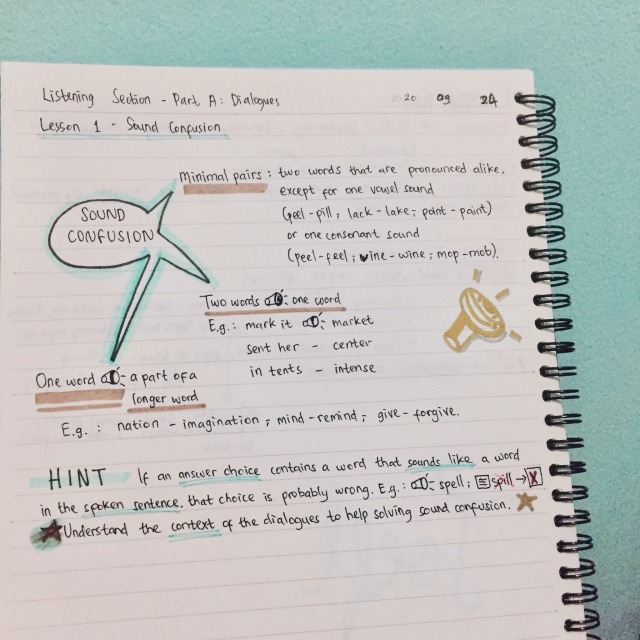 Listening Section - Part A: Dialogues 20 09 24
Lesson 1 - Sound Confusion
Minimal pairs : two words that are pronounced alike,
except for one vowel sound
(peel-pill; lack-lake; point-paint)
or one consonant sound
(peel-feel; vine-wine; mop-mob).
SOUND
CONFUSION
Two words : one word
E.g.: mark it market
sent her - center
in tents - intense
One word : a part of a
longer word
E.g. : nation - imagination ; mind-remind ; give-forgive.
HINT If an answer choice contains a word that sounds like a word
in the spoken sentence, that choice is probably wrong. E.g.: spell; spill → X
Understand the context of the dialogues to help solving sound confusion.